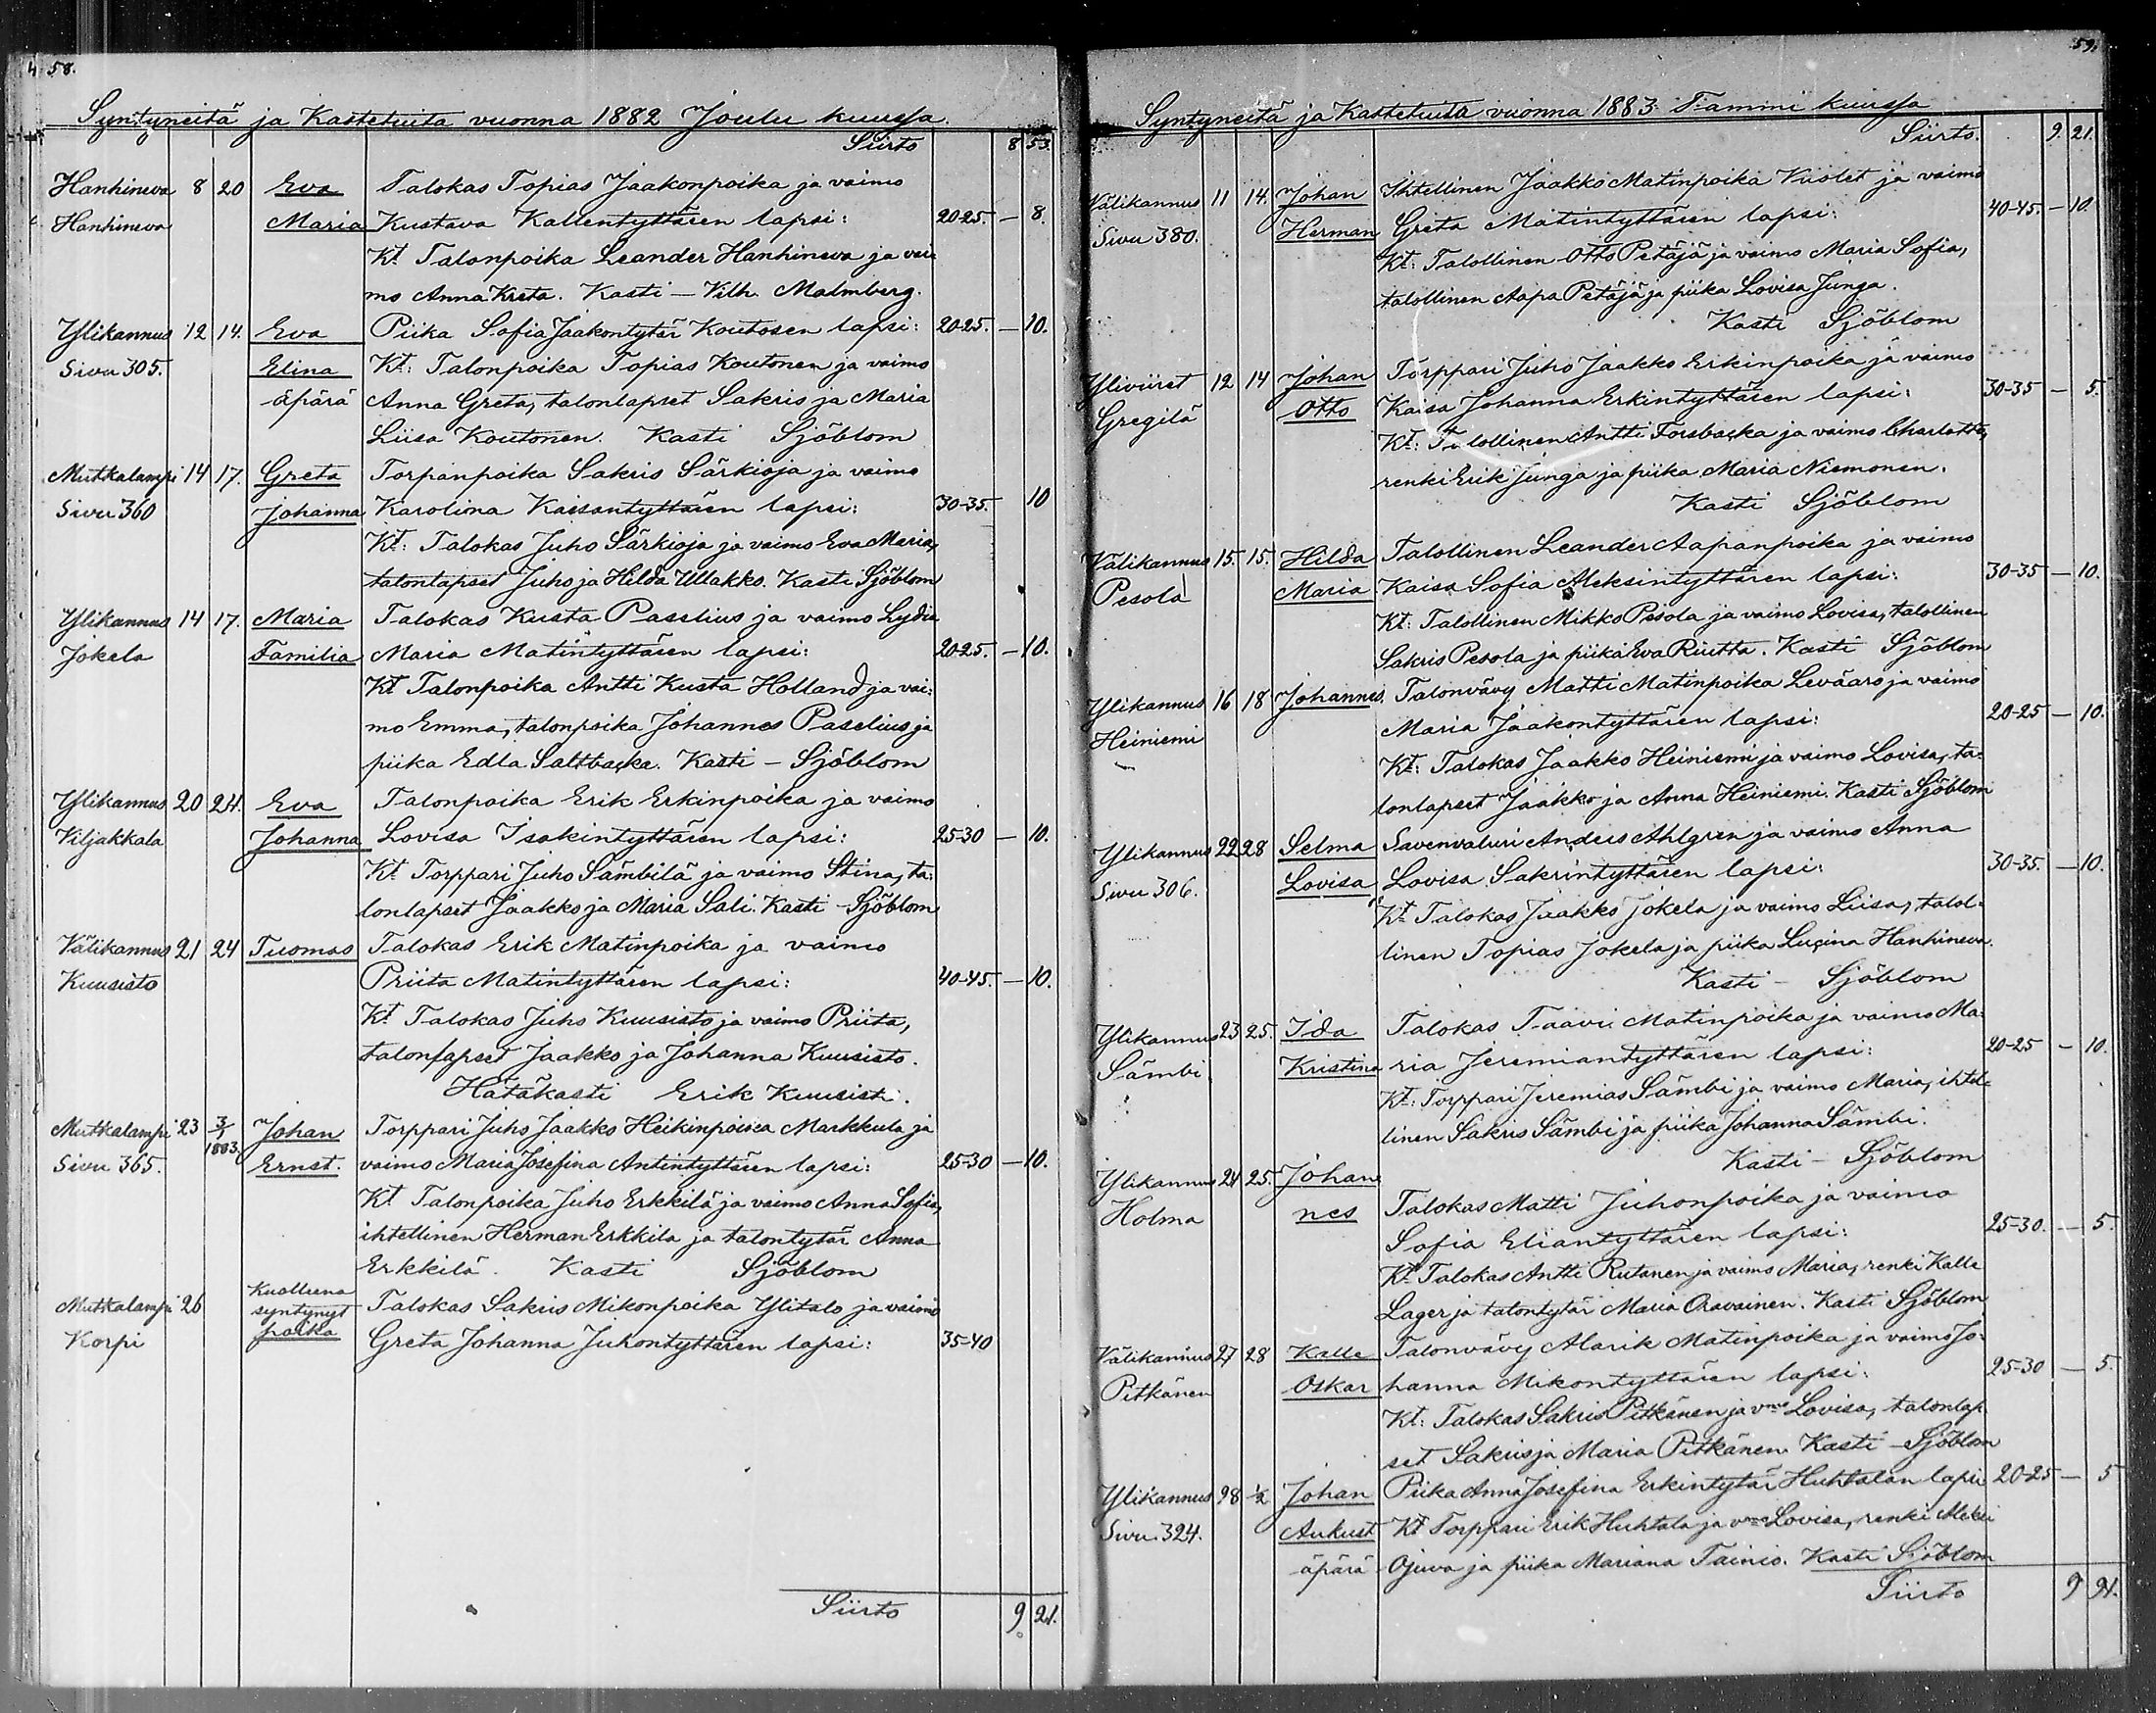 58.
Syntyneitä ja Kastetuita vuonna 1882 Joulu kuussa.
Siirto 8 53.
Hanhineva 8 20 Eva Talokas Topias Jaakonpoika ja vaimo
Hanhineva Maria Kustava Kallentyttären lapsi: 20-25. — 8.
Kt Talonpoika Leander Hanhineva ja vai:
mo Anna Kreta. Kasti — Vilh. Malmberg.
Ylikannus 12 14. Eva Piika Sofia Jaakontytär Koutosen lapsi: 20-25. — 10.
Sivu 305. Elina Kt: Talonpoika Topias Koutonen ja vaimo
äpärä Anna Greta, talonlapset Sakris ja Maria
Liisa Koutonen. Kasti Sjöblom
Mutkalampi 14 17. Greta Torpanpoika Sakris Särkioja ja vaimo
Sivu 360 Johanna Karolina Kaisantyttären lapsi: 30-35. 10
Kt: Talokas Juho Särkioja ja vaimo Eva Maria,
talonlapset Juho ja Hilda Ullakko. Kasti Sjöblom
Ylikannus 14 17. Maria Talokas Kusta Paselius ja vaimo Lydia
Jokela Familia Maria Matintyttären lapsi: 20-25. — 10.
Kt Talonpoika Antti Kusta Holland ja vai:
mo Emma, talonpoika Johannes Paselius ja
piika Edla Saltbacka. Kasti — Sjöblom
Ylikannus 20 24. Eva Talonpoika Erik Erkinpoika ja vaimo
Viljakkala Johanna Lovisa Isakintyttären lapsi: 25-30 — 10.
Kt Torppari Juho Sämbilä ja vaimo Stina, ta:
lonlapset Jaakko ja Maria Sali. Kasti — Sjöblom
Välikannus 21 24 Tuomas Talokas Erik Matinpoika ja vaimo
Kuusisto Priita Matintyttären lapsi: 40-45. — 10.
Kt Talokas Juho Kuusisto ja vaimo Priita,
talonlapset Jaakko ja Johanna Kuusisto.
Hätäkasti Erik Kuusisto.
Mutkalampi 23 3/1 1883. Johan Torppari Juho Jaakko Heikinpoika Markkula ja
Sivu 365. Ernst. vaimo Maria Josefina Antintyttären lapsi: 25-30 — 10.
Kt Talonpoika Juho Erkkilä ja vaimo Anna Sofia,
ihtellinen Herman Erkkila ja talontytär Anna
Erkkilä. Kasti Sjöblom
Kuolleena
Mutkalampi 26 syntynyt Talokas Sakris Mikonpoika Ylitalo ja vaimo
Korpi poika Greta Johanna Juhontyttären lapsi: 35-40
Siirto 9 21.
59.
Syntyneitä ja Kastetuita vuonna 1883 Tammi kuussa
Siirto. 9. 21.
Välikannus 11 14. Johan Ihtellinen Jaakko Matinpoika Vuolet ja vaimo
Sivu 380. Herman Greta Matintyttären lapsi: 40-45. — 10.
Kt: Talollinen Otto Petäjä ja vaimo Maria Sofia,
talollinen Aapa Petäjä ja piika Lovisa Junga.
Kasti Sjöblom
Yliviiret 12 14 Johan Torppari Juho Jaakko Erkinpoika ja vaimo
Gregilä Otto Kaisa Johanna Erkintyttären lapsi: 30-35 — 5.
Kt: Talollinen Antti Forsbacka ja vaimo Charlotta,
renki Erik Junga ja piika Maria Niemonen.
Kasti Sjöblom
Välikannus 15. 15. Hilda Talollinen Leander Aapanpoika ja vaimo
Pesola Maria Kaisa Sofia Aleksintyttären lapsi: 30-35 — 10.
Kt: Talollinen Mikko Pesola ja vaimo Lovisa, talollinen
Sakris Pesola ja piika Eva Riutta. Kasti Sjöblom
Ylikannus 16 18 Johannes. Talonvävy Matti Matinpoika Leväaro ja vaimo
Heiniemi Maria Jaakontyttären lapsi: 20-25 — 10.
Kt: Talokas Jaakko Heiniemi ja vaimo Lovisa, ta:
lonlapset Jaakko ja Anna Heiniemi. Kasti Sjöblom
Ylikannus 22 28 Selma Savenvaluri Anders Ahlgren ja vaimo Anna
Sivu 306. Lovisa Lovisa Sakrintyttären lapsi: 30-35. — 10.
Kt Talokas Jaakko Jokela ja vaimo Liisa, talol:
linen Topias Jokela ja piika Lucina Hanhineva.
Kasti — Sjöblom
Ylikannus 23 25. Ida Talokas Taavi Matinpoika ja vaimo Ma:
Sämbi Kristina ria Jeremiantyttären lapsi: 20-25 — 10.
Kt: Torppari Jeremias Sämbi ja vaimo Maria, ihtel:
linen Sakris Sämbi ja piika Johanna Sämbi.
Kasti — Sjöblom
Ylikannus 24 25. Johan
Holma nes Talokas Matti Juhonpoika ja vaimo
Sofia Eliantyttären lapsi: 25-30. — 5.
Kt Talokas Antti Rutanen ja vaimo Maria, renki Kalle
Lager ja talontytär Maria Oravainen. Kasti Sjöblom
Välikannus 27 28 Kalle Talonvävy Alarik Matinpoika ja vaimo Jo:
Pitkänen Oskar hanna Mikontyttären lapsi: 25-30 — 5.
Kt: Talokas Sakris Pitkänen ja vmo Lovisa, talonlap:
set Sakris ja Maria Pitkänen Kasti — Sjöblom
Ylikannus 28 1/2 Johan Piika Anna Josefina Erkintytär Huhtalan lapsi 20-25 — 5
Sivu 324. Aukust Kt Torppari Erik Huhtala ja vmo Lovisa, renki Aleksi
äpärä Ojuva ja piika Mariana Tainio. Kasti Sjöblom
Siirto 9 91.